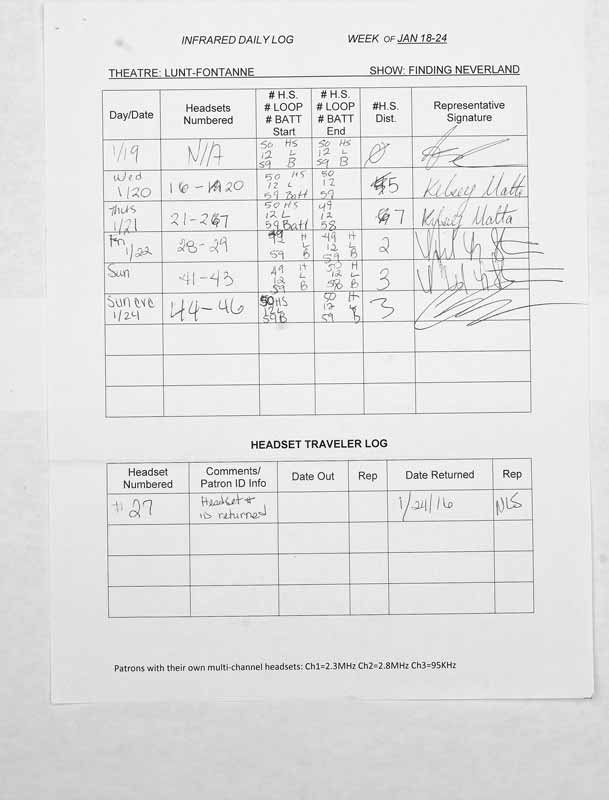 INFRARED DAILY LOG WEEK OF JAN 18-24
THEATRE: LUNT-FONTANNE SHOW: FINDING NEVERLAND
Day/Date Headsets Numbered # H.S. # LOOP # BATT Start # H.S. # LOOP # BATT End #H.S. Dist. Representative Signature
1/19 N/A 50 HS 12 L 59 B 50 HS 12 L 59 B 0
Wed 1/20 16-20 50 HS 12 L 59 Batt 50 12 59 5 Kelsey Matta
Thus 1/21 21-27 50 HS 12 L 59 Batt 49 12 58 7 Kelsey Matta
Fri 1/22 28-29 49 H 12 L 59 B 49 H 12 L 59 B 2
Sun 41-43 49 H 12 L 59 B H 12 L B 3
Sun eve 1/24 44-46 50 HS 12 L 59 B 50 H 12 L 59 B 3
HEADSET TRAVELER LOG
Headset Numbered Comments/ Patron ID Info Date Out Rep Date Returned Rep
# 27 Headset # ID returned 1/24/16 NLS
Patrons with their own multi-channel headsets: Ch1=2.3MHz Ch2=2.8MHz Ch3=95KHz